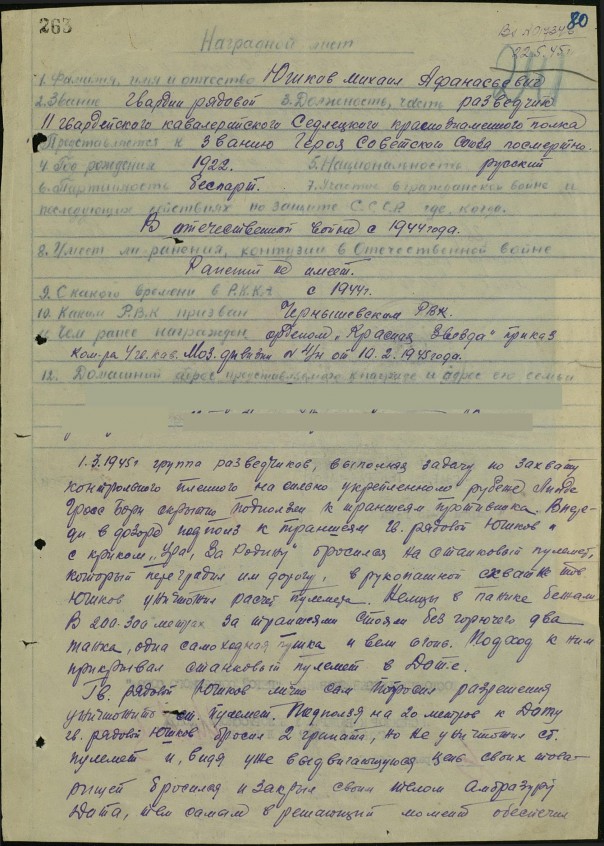 263
80
22.5.45г
Наградной лист
1. Фамилия, имя и отчество Юшков Михаил Афанасьевич
2. Звание Гвардии рядовой 3. Должность, часть разведчик
11 гвардейского кавалерийского Седлецкого краснознаменного полка
Представляется к Званию Героя Советского Союза посмертно.
4. Год рождения 1922. 5. Национальность русский
6. Партийность беспарт. 7. Участие в гражданской войне и
последующих действиях по защите С.С.С.Р. где, когда.
В отечественной войне с 1944 года.
8. Имеет ли ранения, контузии в Отечественной войне
Ранений не имеет.
9. С какого времени в Р.К.К.А с 1944г.
10. Каким Р.В.К призван Чернышевским РВК.
11. Чем ранее награжден орденом "Красная Звезда" приказ
ком-ра 4 гв. кав. Моз. дивизии № /н от 10.2.1945 года.
12. Домашний адрес представляемого к награде и адрес его семьи
1.3.1945г группа разведчиков, выполняя задачу по захвату
контрольного пленного на сильно укрепленном рубеже Линде
Гросс Борн скрытно подползли к траншеям противника. Впере-
ди в дозоре подполз к траншеям гв. рядовой Юшков и
с криком "Ура, За Родину" бросился на станковый пулемет,
который переградил им дорогу, в рукопашной схватке тов
Юшков уничтожил расчет пулемета. Немцы в панике бежали.
В 200-300 метрах за траншеями стояли без горючего два
танка, одна самоходная пушка и вели огонь. Подход к ним
прикрывал станковый пулемет в Доте.
Гв. рядовой Юшков лично сам попросил разрешения
уничтожить ст. пулемет. Подползя на 20 метров к Доту
гв. рядовой Юшков бросил 2 гранаты, но не уничтожил ст.
пулемет и, видя уже выдвигающуюся цепь своих това-
рищей бросился и закрыл своим телом амбразуру
Дота, тем самым в решающий момент обеспечил